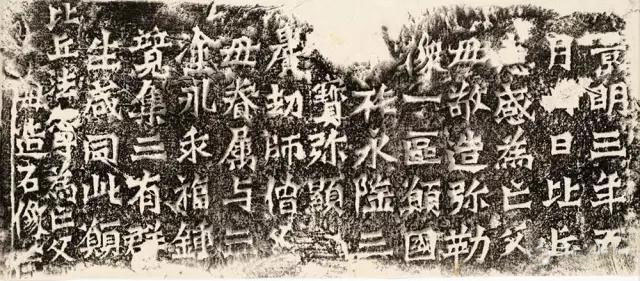 景明三年五
月日比丘
感為亡父
母敬造弥勒
像一區願國
祚永隆三
寶弥顯
曠劫師僧父
母眷属与三
塗永乖福鍾
競集三有群
生咸同此願
比丘法寧為亡父
母造石像